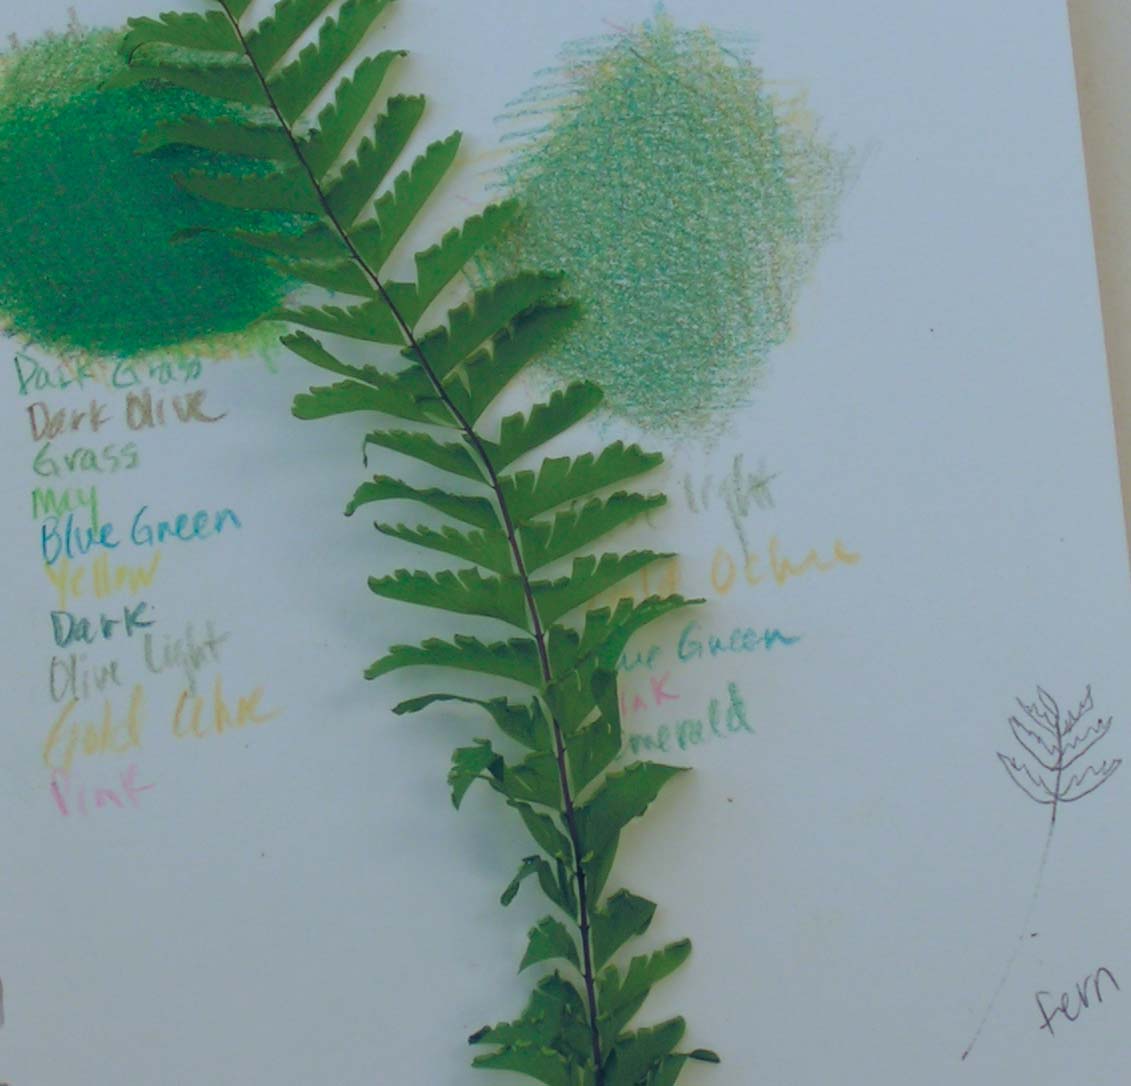 Dark Grass
Dark Olive
Grass
May
Blue Green
Yellow
Dark
Olive light
Gold Ochre
Pink
light
Ochre
Green
merald
fern